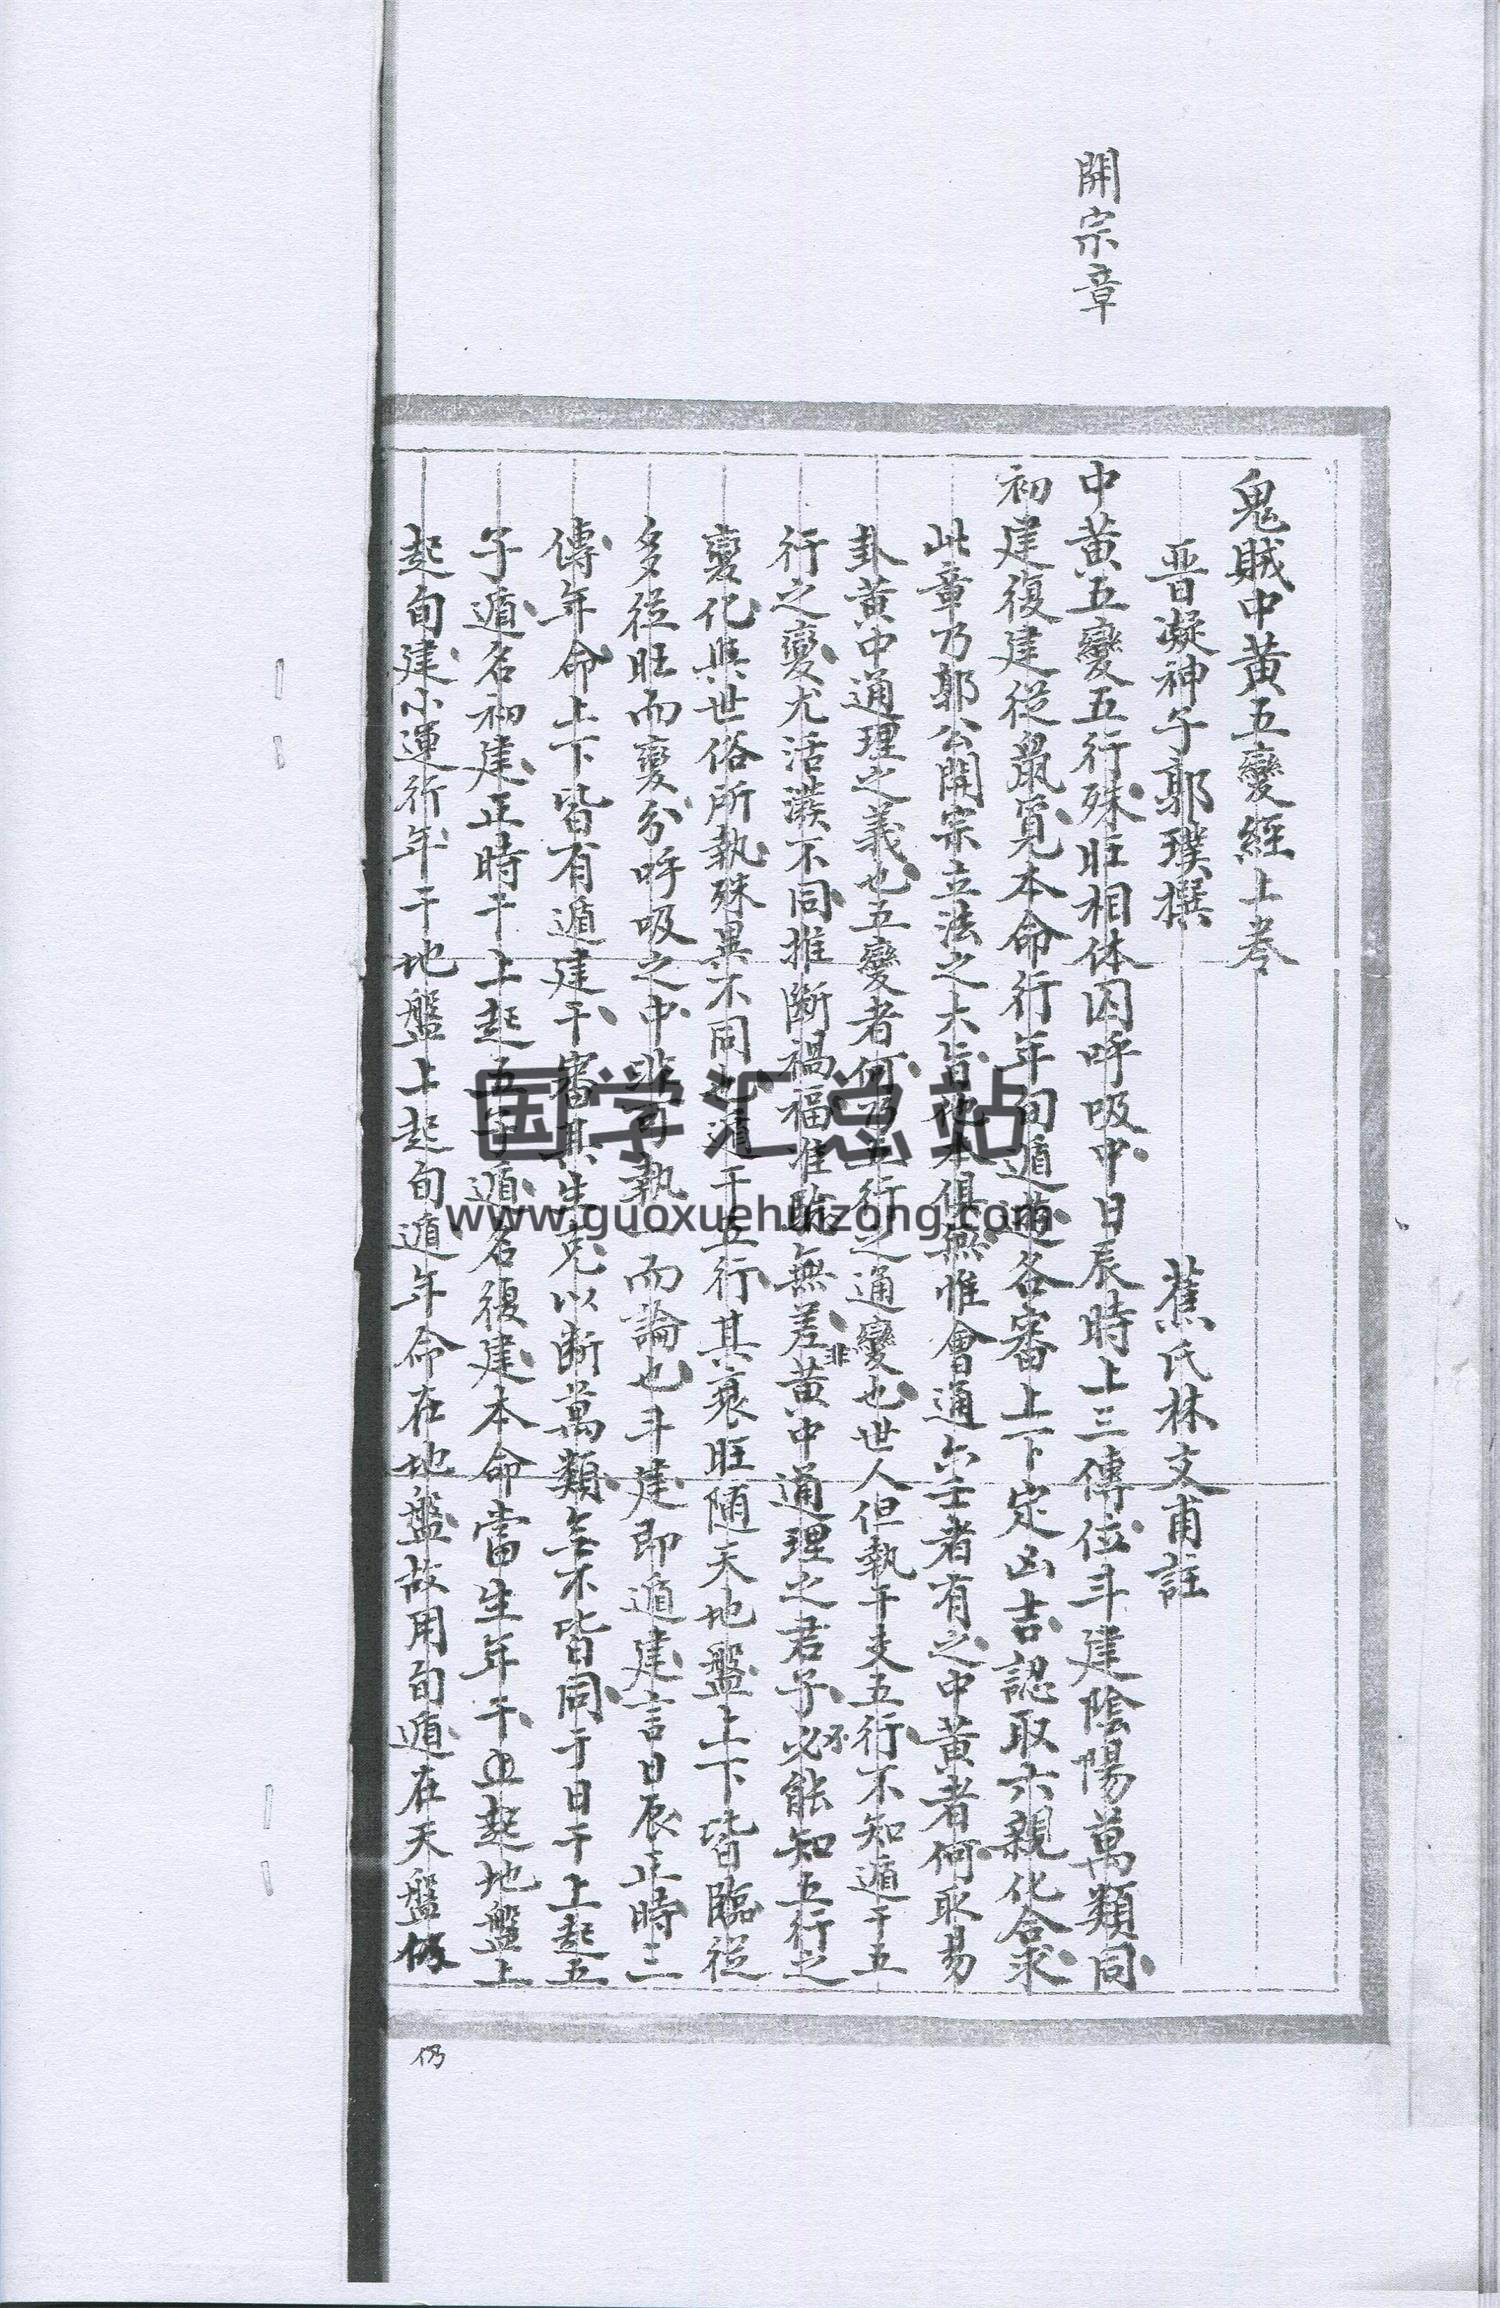 開宗章
鬼賊中黃五變經上卷
晋凝神子郭璞撰 蕉氏林支甫註
中黃五變五行殊旺相体囚呼吸中日辰時上三傳位斗建陰陽萬類同
初建復建從鼠覓本命行年旬遁遊各審上下定凶吉認取六親化合求
此章乃郭公開宗立法之大旨他本俱無惟會通六壬者有之中黃者何取易
卦黃中通理之義也五變者何乃五行之通變也世人但執干支五行不知遁干五
行之變尤活潑不同推斷禍福住臨無差非黃中通理之君子必不能知五行之
變化與世俗所執殊異不同也遁干五行其衰旺随天地盤上下皆臨從
多從旺而變分呼吸之中非可執一而論也斗建即遁建言日辰正時三
傳年命上下皆有遁建干審其生克以断萬類無不皆同于日干上起五
子遁名初建正時干上起五子遁名復建本命當生年干丑起地盤上
起旬建小運行年干地盤上起旬遁年命在地盤故用旬遁在天盤仍
仍
国学汇总站
www.guoxuehuizong.com